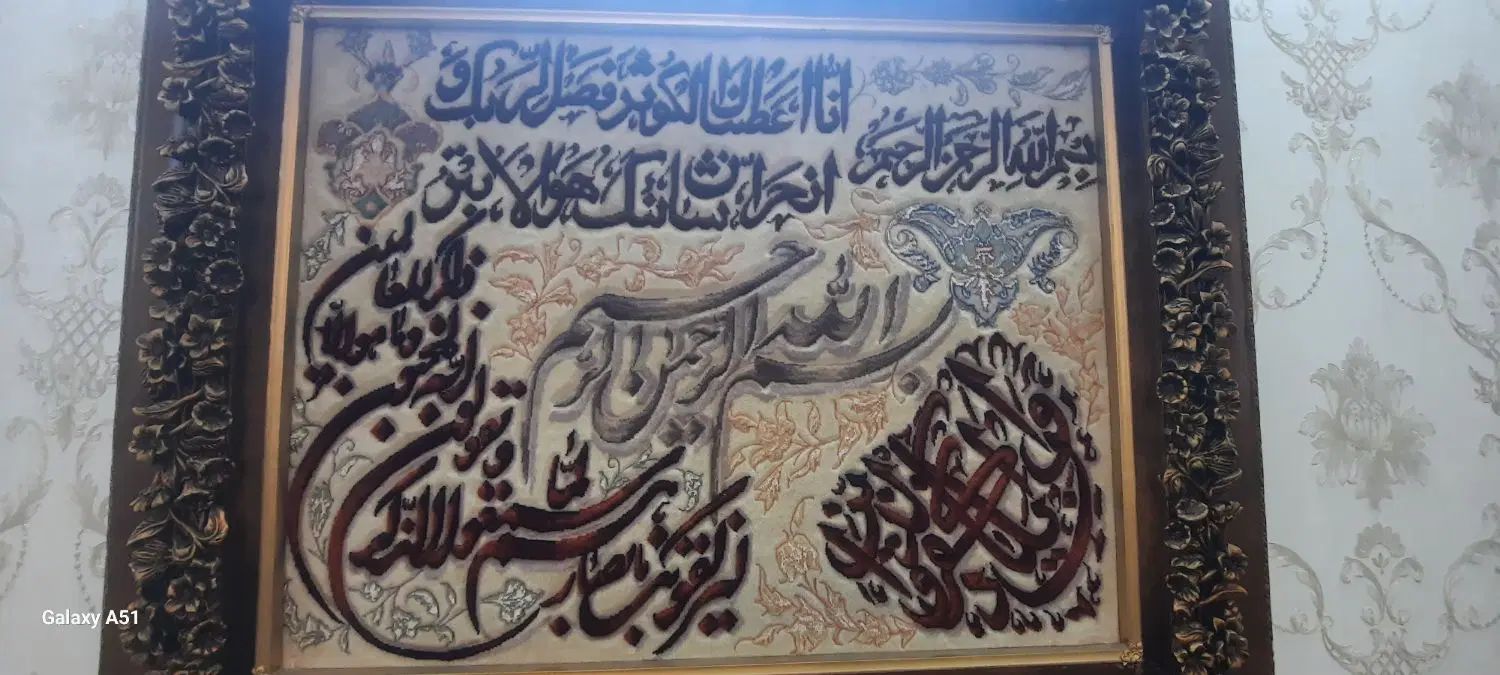 بسم الله الرحمن الرحيم
انا اعطيناك الكوثر فصل لربك و
انحر ان شانئك هو الابتر
بسم الله الرحمن الرحيم
و ان يكاد الذين كفروا
ليزلقونك بابصارهم لما سمعوا الذكر
و يقولون انه لمجنون و ما هو الا
ذكر للعالمين
Galaxy A51